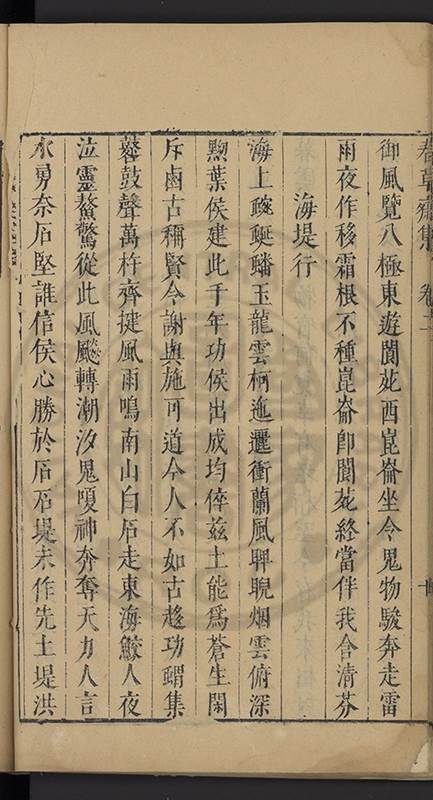 春草齋集 卷二
御風覽八極東遊閬苑西崑崙坐令鬼物駿奔走雷
雨夜作移霜根不種崑崙卽閬苑終當伴我舍清芬
海堤行
海上蜿蜒蟠玉龍雲柯迤邐衝蘭風睥睨烟雲俯深
勲葉侯建此千年功侯出成均倅兹土能爲蒼生閑
斥鹵古稱賢令謝與施可道今人不如古趍功蝟集
鼛鼓聲萬杵齊揵風雨鳴南山白石走東海鮫人夜
泣靈鰲驚從此風飈轉潮汐鬼嗄神奔奪天力人言
水勇奈石堅誰信侯心勝於石石堤未作先土堤洪